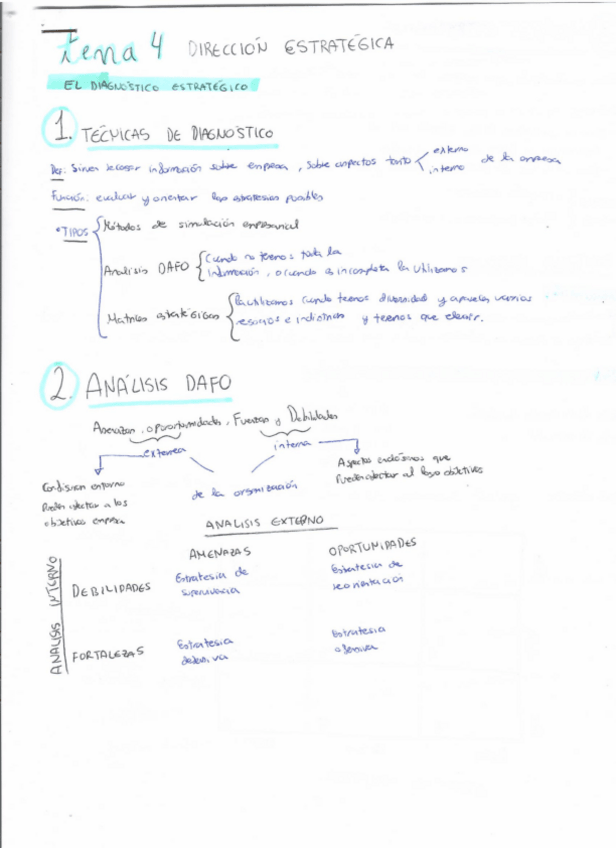 Tema 4 DIRECCIÓN ESTRATÉGICA
EL DIAGNÓSTICO ESTRATÉGICO
1. TÉCNICAS DE DIAGNÓSTICO
Def: Sirven recoger información sobre empresa, sobre aspectos tanto externo
interno de la empresa
Función: evaluar y orientar las estrategias posibles
• TIPOS
Métodos de simulación empresarial
Análisis DAFO
Cuando no tenemos toda la
información, o cuando es incompleta la utilizamos
Matrices estratégicas
La utilizamos cuando tenemos diversidad y aparecen varios
negocios e y tenemos que elegir.
2. ANÁLISIS DAFO
Amenazas, oportunidades, Fuerzas y Debilidades
externa
interna
de la organización
Condicionan entorno
Pueden afectar a los
objetivos empresa
Aspectos endógenos que
Pueden afectar al objetivos
ANALISIS EXTERNO
AMENAZAS
OPORTUNIDADES
ANALISIS INTERNO
DEBILIDADES
Estrategia de
supervivencia
Estrategia de
reorientación
FORTALEZAS
Estrategia
defensiva
Estrategia
ofensiva